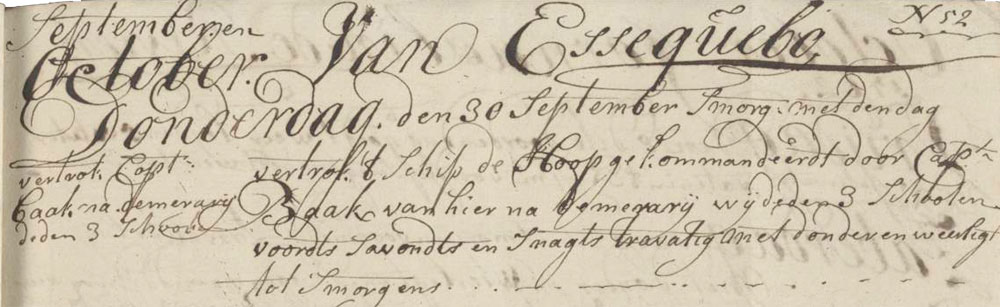 September en
October. Van Essequebo. N 52
Donderdag. den 30 September Smorg: met den dag
vertrok t Schip de Hoop gekommandeerdt door Capt:
Baak van hier na demerarij wij deden 3 Schooten
voordts Savondts en Snagts travatig met donder en weerligt
tot Smorgens
vertrok. Capt:
Baak. na. demerarij
deden 3 Schoot